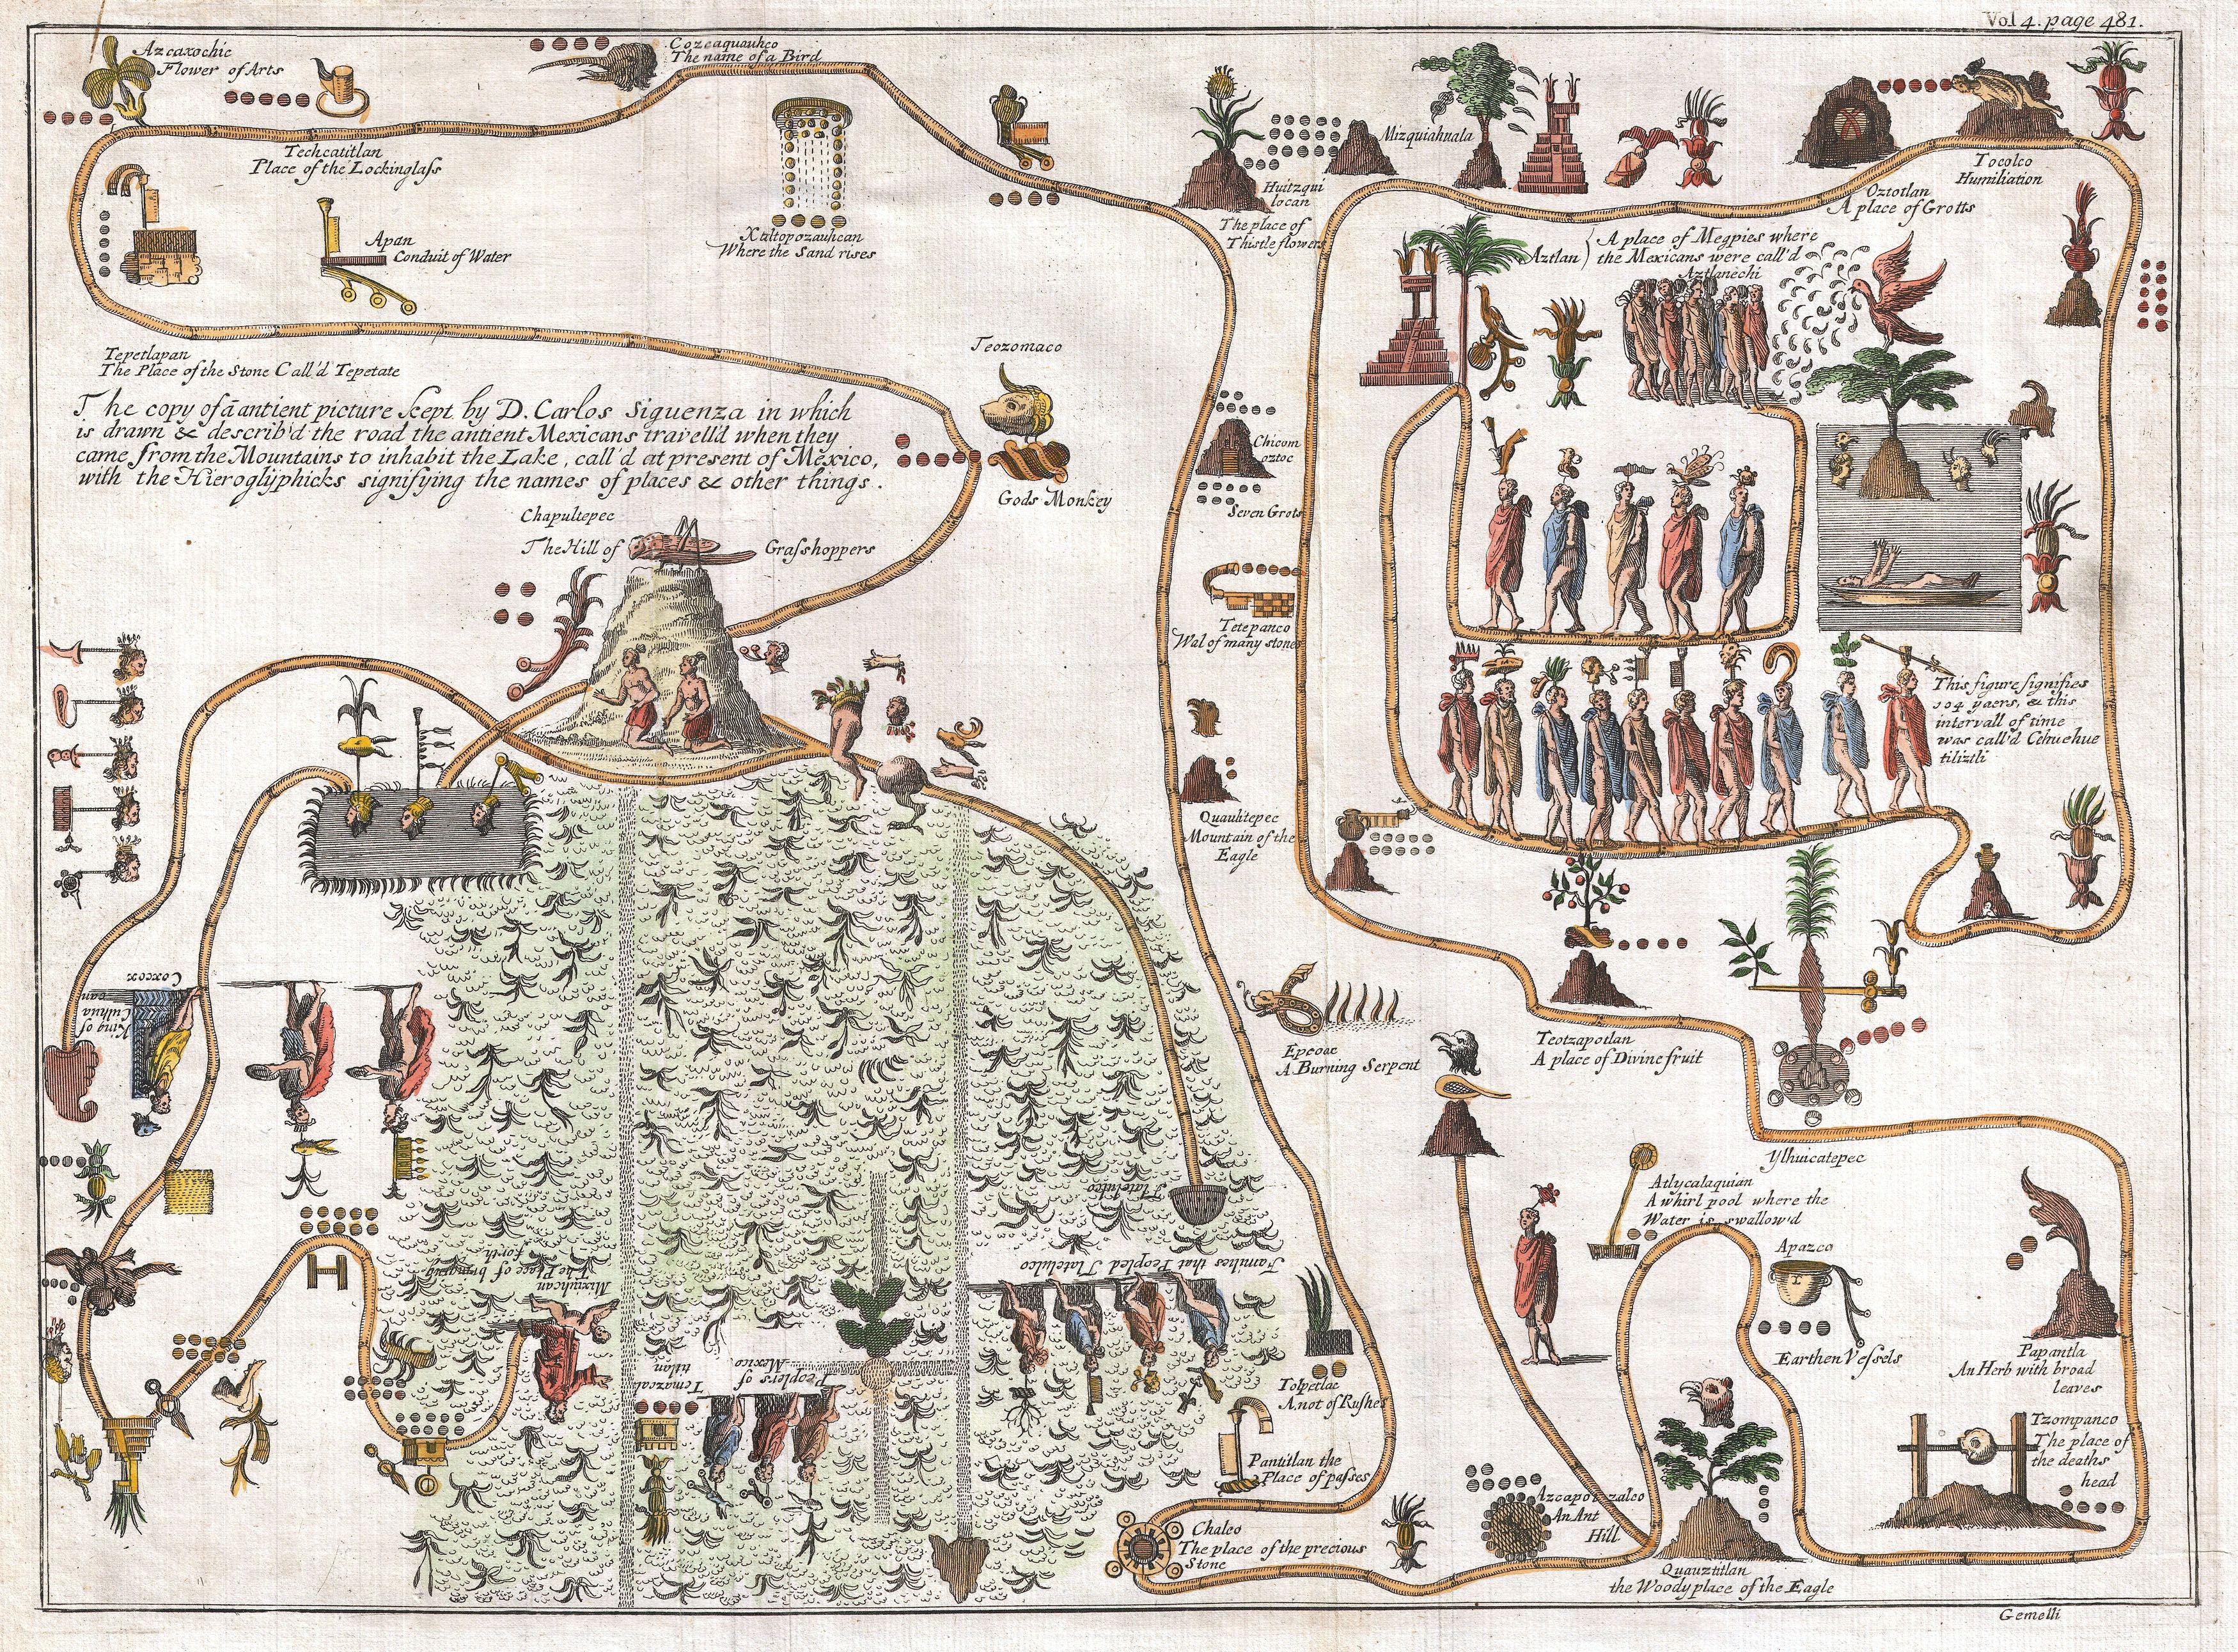 Vol 4. page 481.
Azcaxochic
Flower of Arts
Cozcaquauhco
The name of a Bird
Techcatitlan
Place of the Lockinglass
Apan
Conduit of Water
Xaltopozauhcan
Where the Sand rises
Huitzqui
locan
The place of
Thistle flowers
Mizquiahuala
Oztotlan
A place of Grotts
Tocolco
Humiliation
Aztlan
A place of Megpies where
the Mexicans were call'd
Aztlanechi
Tepetlapan
The Place of the Stone Call'd Tepetate
The copy of ā antient picture kept by D. Carlos Siguenza in which
is drawn & describ'd the road the antient Mexicans travell'd when they
came from the Mountains to inhabit the Lake, call'd at present of Mexico,
with the Hieroglyphicks signifying the names of places & other things.
Teozomaco
Gods Monkey
Chapultepec
The Hill of Grasshoppers
Chicom
oztoc
Seven Grots
Tetepanco
Wal of many stones
Quauhtepec
Mountain of the
Eagle
This figure signifies
104 yaers, & this
intervall of time
was call'd Cehuehue
tiliztli
Coxcox
King of
Culhua
can
Epcoac
A Burning Serpent
Teotzapotlan
A place of Divine fruit
Ylhuicatepec
Atlycalaquian
A whirl pool where the
Water is swallow'd
Apazco
Earthen Vessels
Papantla
An Herb with broad
leaves
Tzompanco
The place of
the deaths
head
Tlatelulco
Families that Peopled Tlatelulco
Mixiuhcan
The Place of bringing
forth
Peoplers of
Mexico
Temazcal
titlan
Tolpetlac
A not of Rushes
Pantitlan the
Place of passes
Chalco
The place of the precious
Stone
Azcapotzalco
An Ant
Hill
Quauztitlan
the Woody place of the Eagle
Gemelli